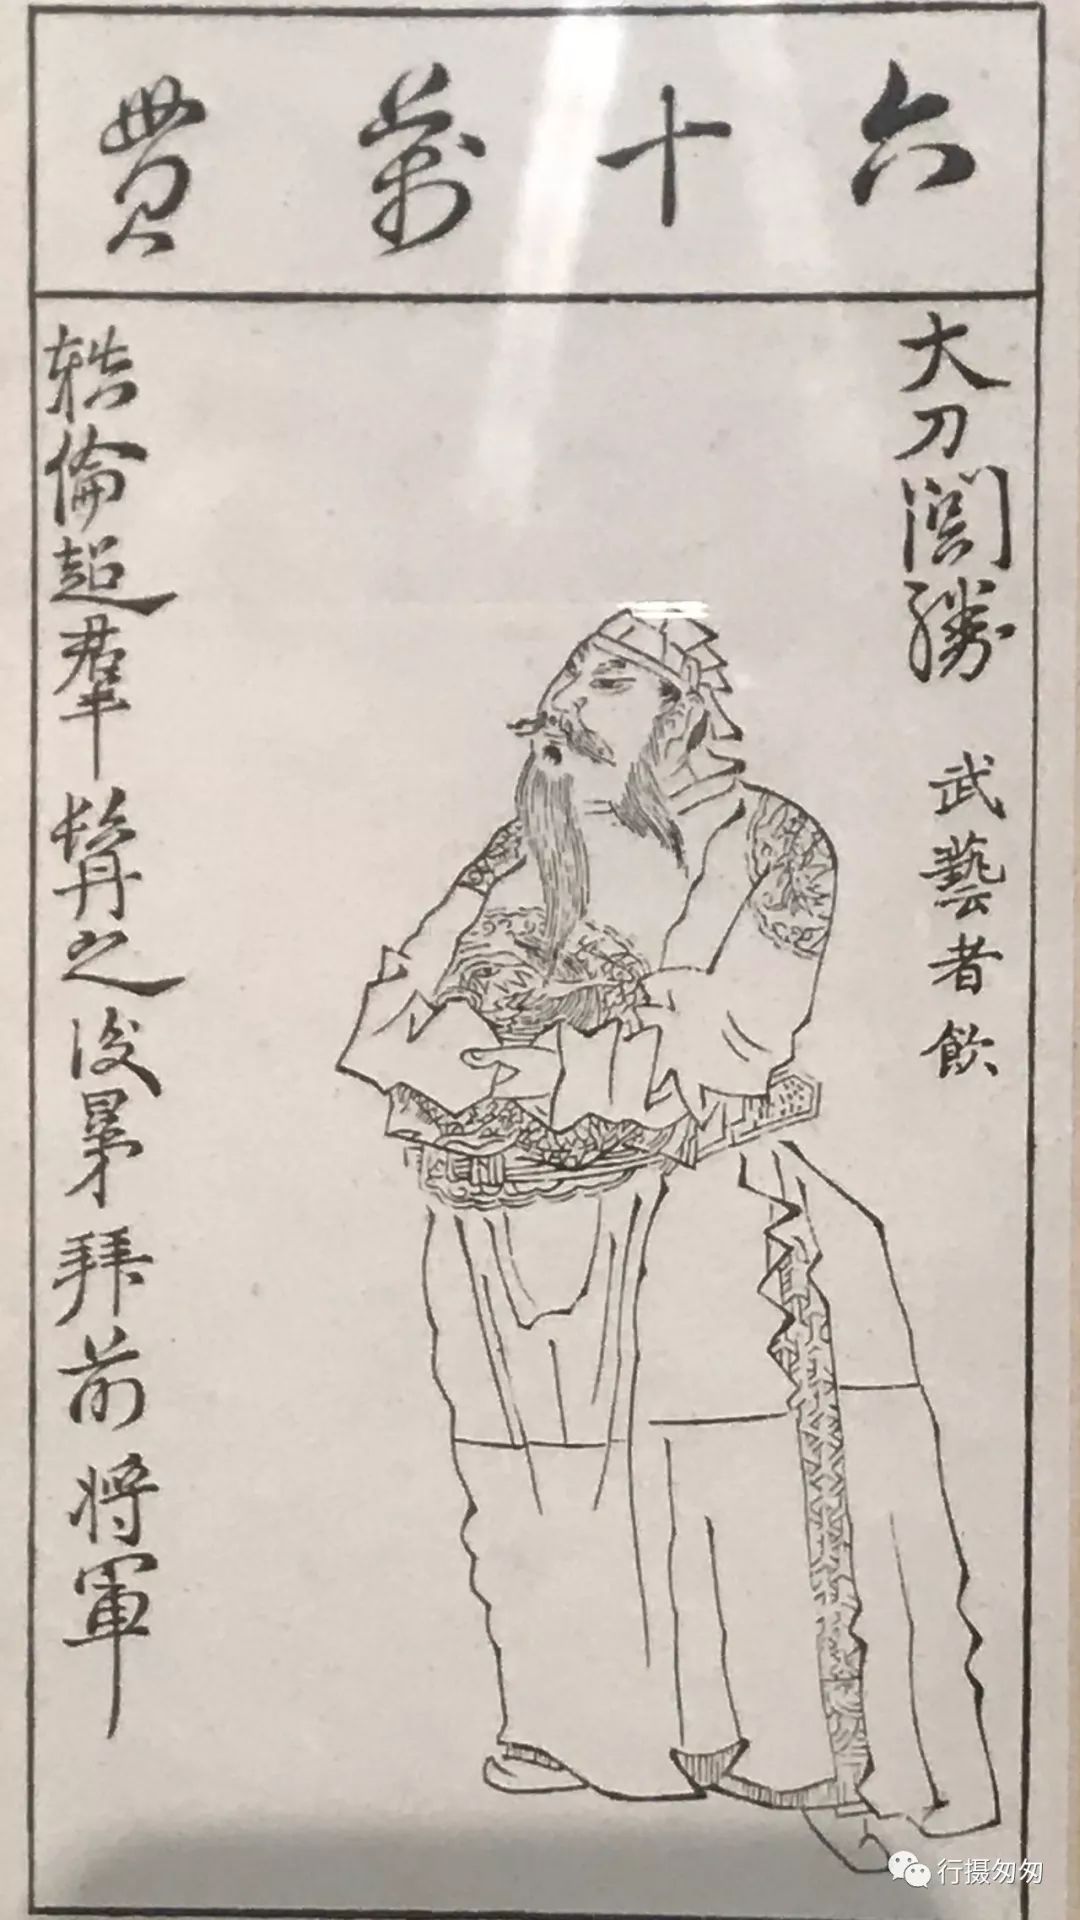 六十萬貫
大刀關勝 武藝者飲
軼倫超羣髯之後晜拜前将軍
行摄匆匆